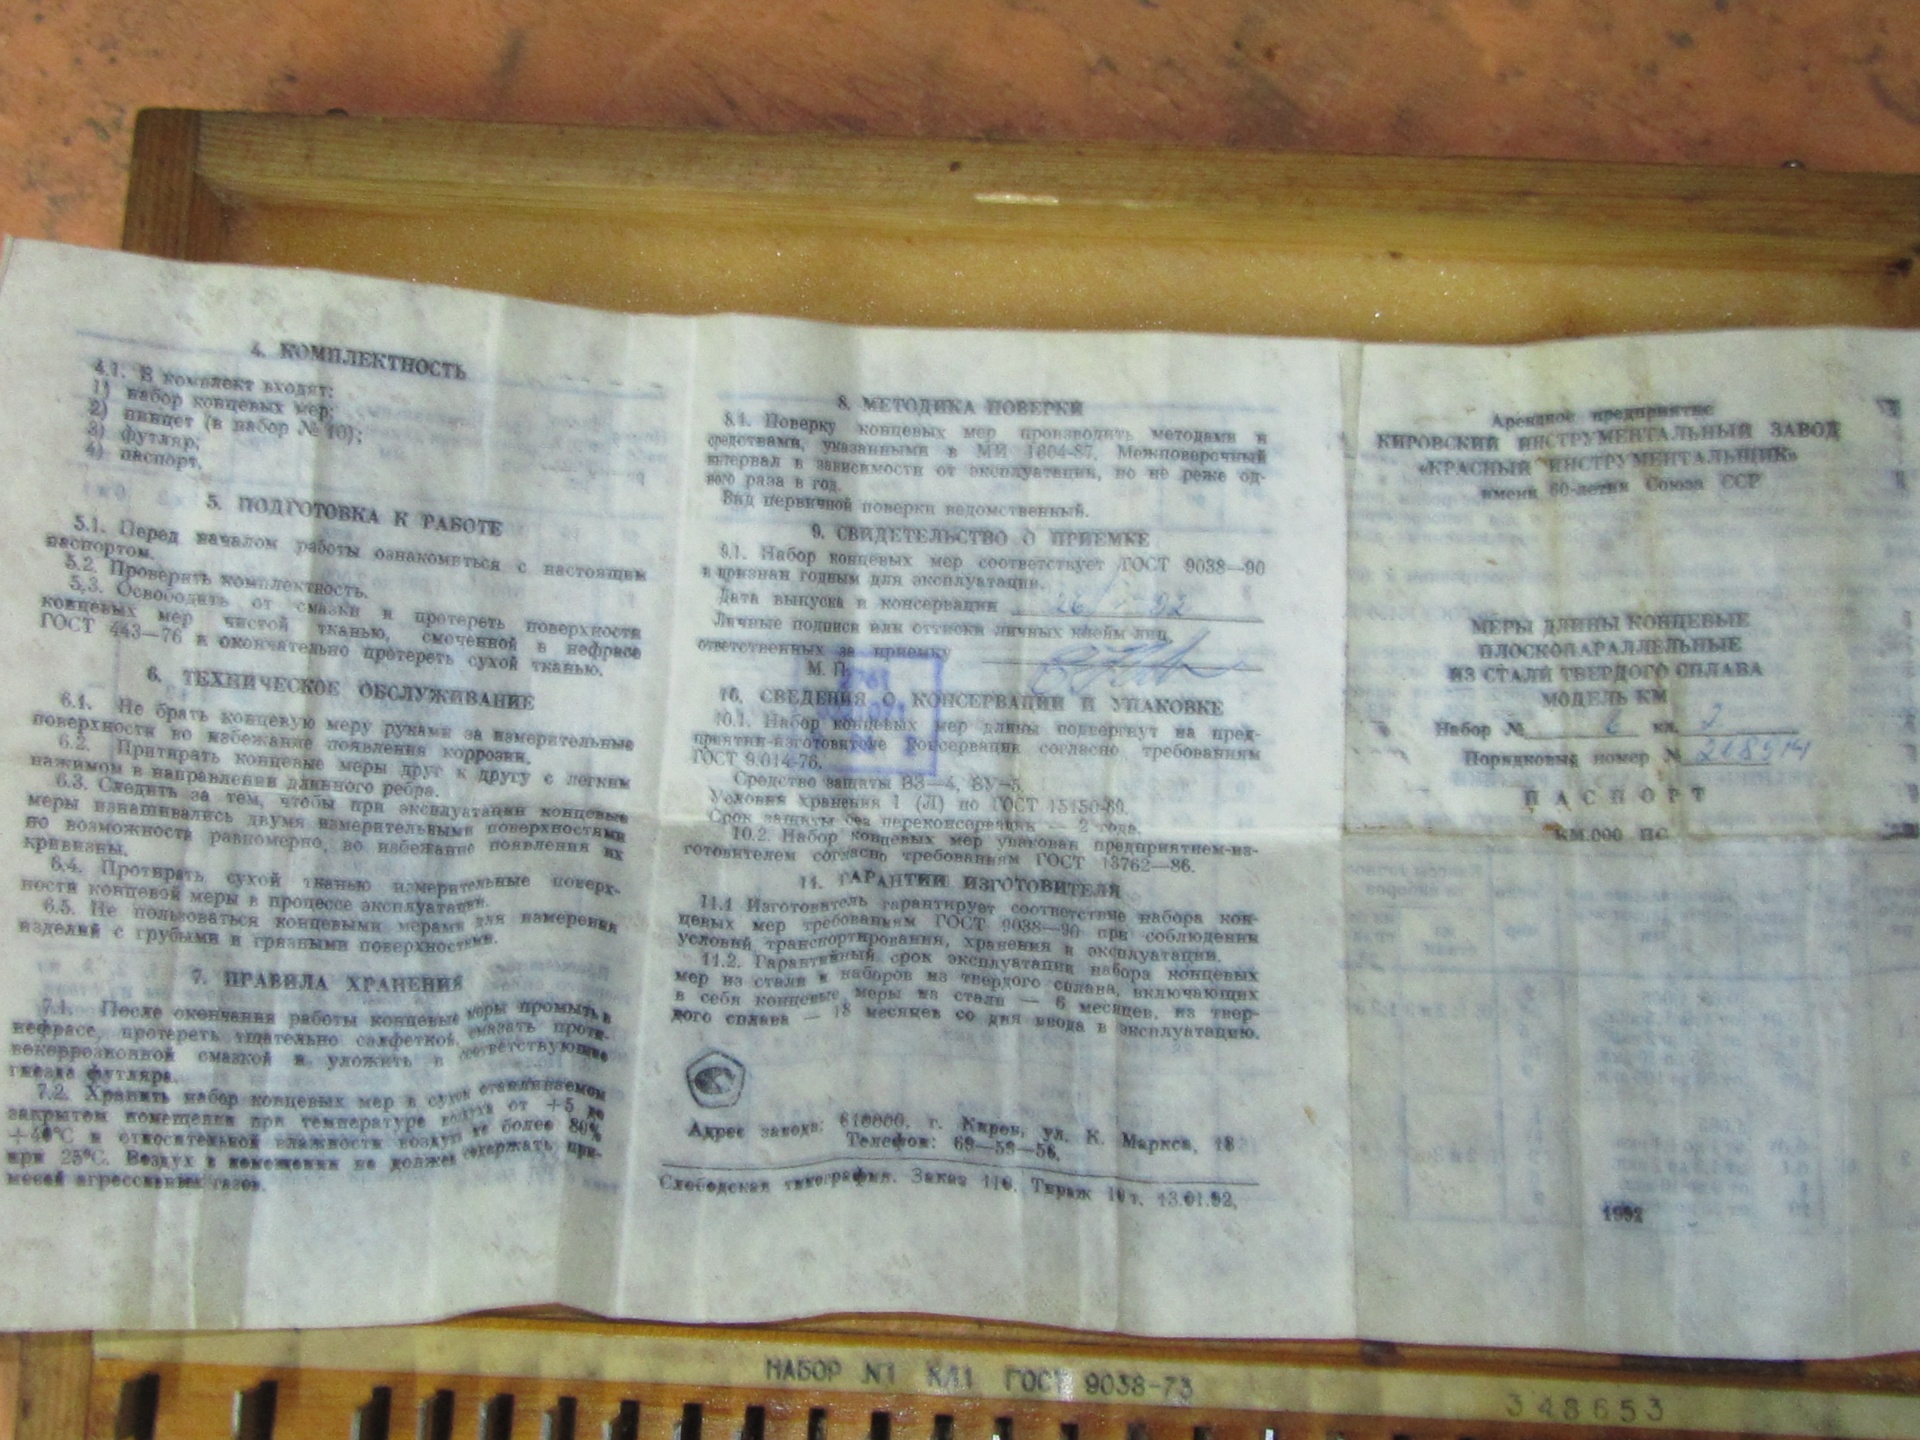 4. КОМПЛЕКТНОСТЬ
4.1. В комплект входят:
1) набор концевых мер;
2) пинцет (в набор № 10);
3) футляр;
4) паспорт.
5. ПОДГОТОВКА К РАБОТЕ
5.1. Перед началом работы ознакомиться с настоящим
паспортом.
5.2. Проверить комплектность.
5.3. Освободить от смазки и протереть поверхности
концевых мер чистой тканью, смоченной в нефрасе
ГОСТ 443—76 и окончательно протереть сухой тканью.
6. ТЕХНИЧЕСКОЕ ОБСЛУЖИВАНИЕ
6.1. Не брать концевую меру руками за измерительные
поверхности во избежание появления коррозии.
6.2. Притирать концевые меры друг к другу с легким
нажимом в направлении длинного ребра.
6.3. Следить за тем, чтобы при эксплуатации концевые
меры изнашивались двумя измерительными поверхностями
по возможности равномерно, во избежание появления их
кривизны.
6.4. Протирать сухой тканью измерительные поверх-
ности концевой меры в процессе эксплуатации.
6.5. Не пользоваться концевыми мерами для измерения
изделий с грубыми и грязными поверхностями.
7. ПРАВИЛА ХРАНЕНИЯ
7.1. После окончания работы концевые меры промыть в
нефрасе, протереть тщательно салфеткой, смазать проти-
вокоррозионной смазкой и уложить в соответствующие
гнезда футляра.
7.2. Хранить набор концевых мер в сухом отапливаемом
закрытом помещении при температуре воздуха от +5 до
+40°С и относительной влажности воздуха не более 80%
при 25°С. Воздух в помещении не должен содержать при-
месей агрессивных газов.
8. МЕТОДИКА ПОВЕРКИ
8.1. Поверку концевых мер производить методами и
средствами, указанными в МИ 1604-87. Межповерочный
интервал в зависимости от эксплуатации, но не реже од-
ного раза в год.
Вид первичной поверки ведомственный.
9. СВИДЕТЕЛЬСТВО О ПРИЕМКЕ
9.1. Набор концевых мер соответствует ГОСТ 9038—90
и признан годным для эксплуатации.
Дата выпуска и консервации
Личные подписи или оттиски личных клейм лиц,
ответственных за приемку
М. П.
10. СВЕДЕНИЯ О КОНСЕРВАЦИИ И УПАКОВКЕ
10.1. Набор концевых мер длины подвергнут на пред-
приятии-изготовителе консервации согласно требованиям
ГОСТ 9.014-76.
Средство защиты ВЗ—4, ВУ—5.
Условия хранения 1 (Л) по ГОСТ 15150-69.
Срок защиты без переконсервации — 2 года.
10.2. Набор концевых мер упакован предприятием-из-
готовителем согласно требованиям ГОСТ 13762—86.
11. ГАРАНТИИ ИЗГОТОВИТЕЛЯ
11.1 Изготовитель гарантирует соответствие набора кон-
цевых мер требованиям ГОСТ 9038—90 при соблюдении
условий транспортирования, хранения и эксплуатации.
11.2. Гарантийный срок эксплуатации набора концевых
мер из стали и наборов из твердого сплава, включающих
в себя концевые меры из стали — 6 месяцев, из твер-
дого сплава — 18 месяцев со дня ввода в эксплуатацию.
Адрес завода: 610000, г. Киров, ул. К. Маркса, 18
Телефон: 69—53—56.
Слободская типография. Заказ 116. Тираж 10 т. 13.01.92.
Арендное предприятие
КИРОВСКИЙ ИНСТРУМЕНТАЛЬНЫЙ ЗАВОД
«КРАСНЫЙ ИНСТРУМЕНТАЛЬЩИК»
имени 60-летия Союза ССР
МЕРЫ ДЛИНЫ КОНЦЕВЫЕ
ПЛОСКОПАРАЛЛЕЛЬНЫЕ
ИЗ СТАЛИ ТВЕРДОГО СПЛАВА
МОДЕЛЬ КМ
Набор № 6 кл. 2
Порядковый номер №
ПАСПОРТ
КМ.000 ПС
1992
НАБОР №1 КЛ1 ГОСТ 9038-73
348653